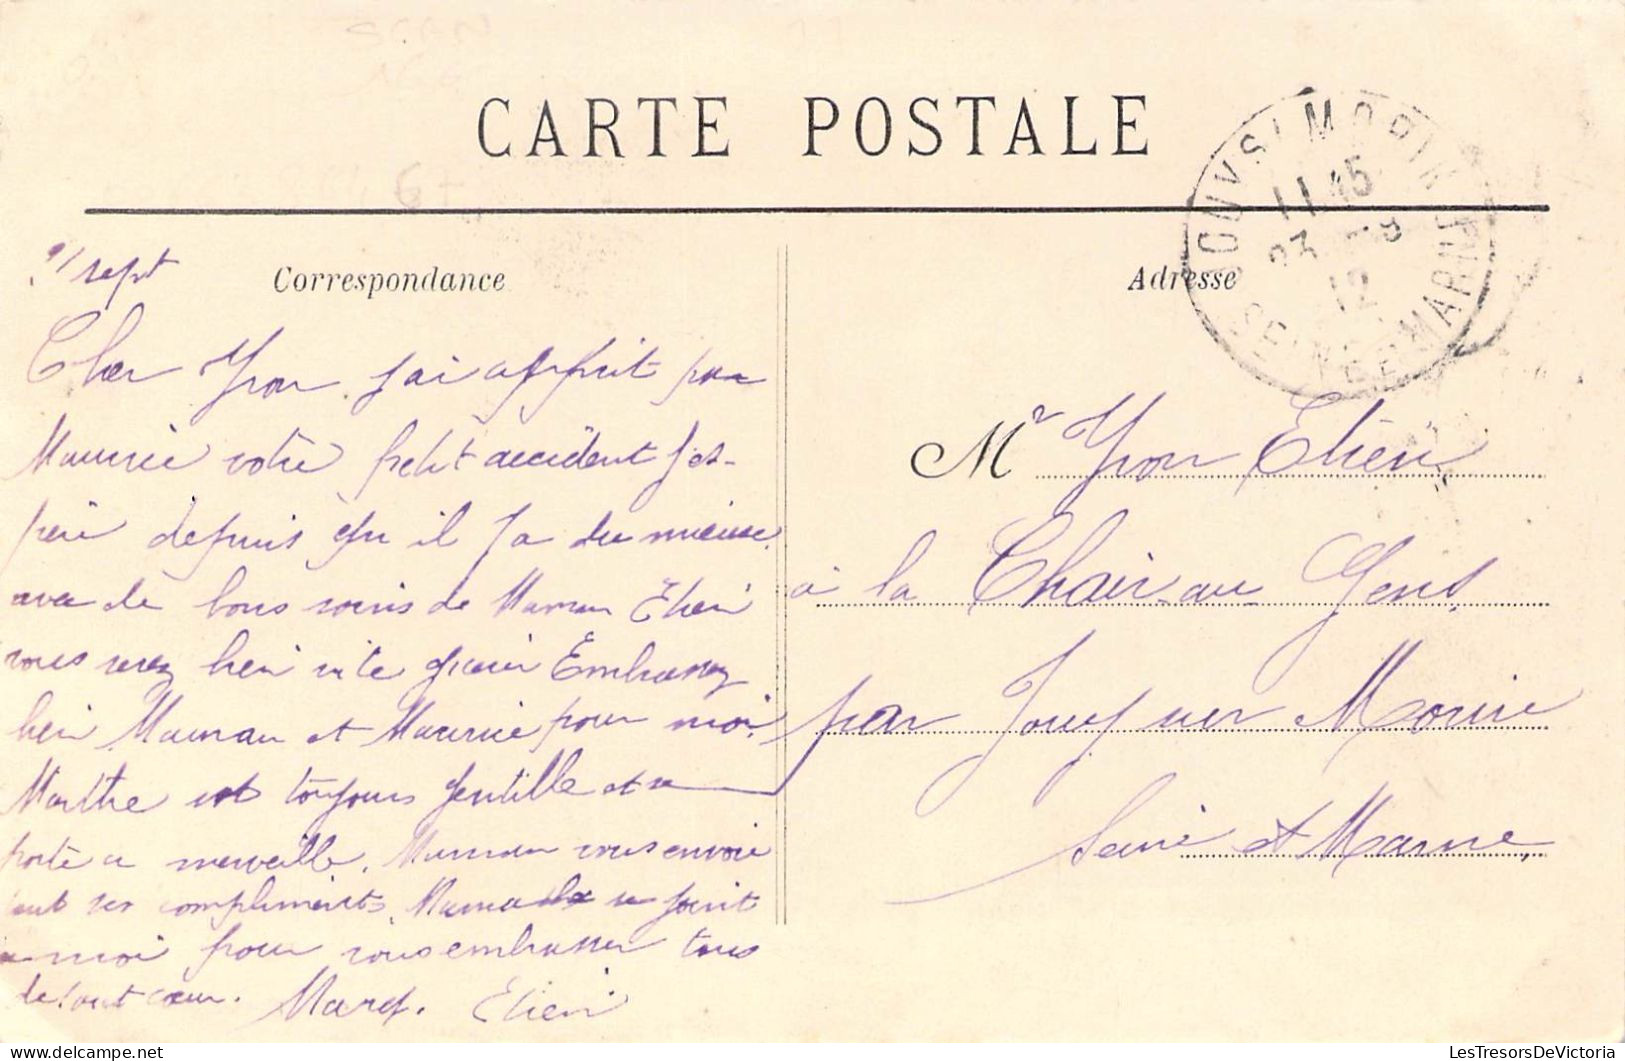 CARTE POSTALE
11 45
12
SEINE-ET-MARNE
Correspondance
Adresse
sept
Cher Yvon j'ai apprit par
Maurice votre petit accident j'es-
père depuis qu il y a du mieux
avec de bons soins de Maman Etien
vous serez bien vite guéri Embrassez
bien Maman et Maurice pour moi.
Marthe est toujours gentille et se
porte a merveille. Maman vous envoie
tout ses compliments. se joint
a moi pour vous embrasser tous
de tout cœur. Etien
Mr Yvon Etien
à la au
par Jouy sur Morin
Seine et Marne
LesTresorsDeVictoria